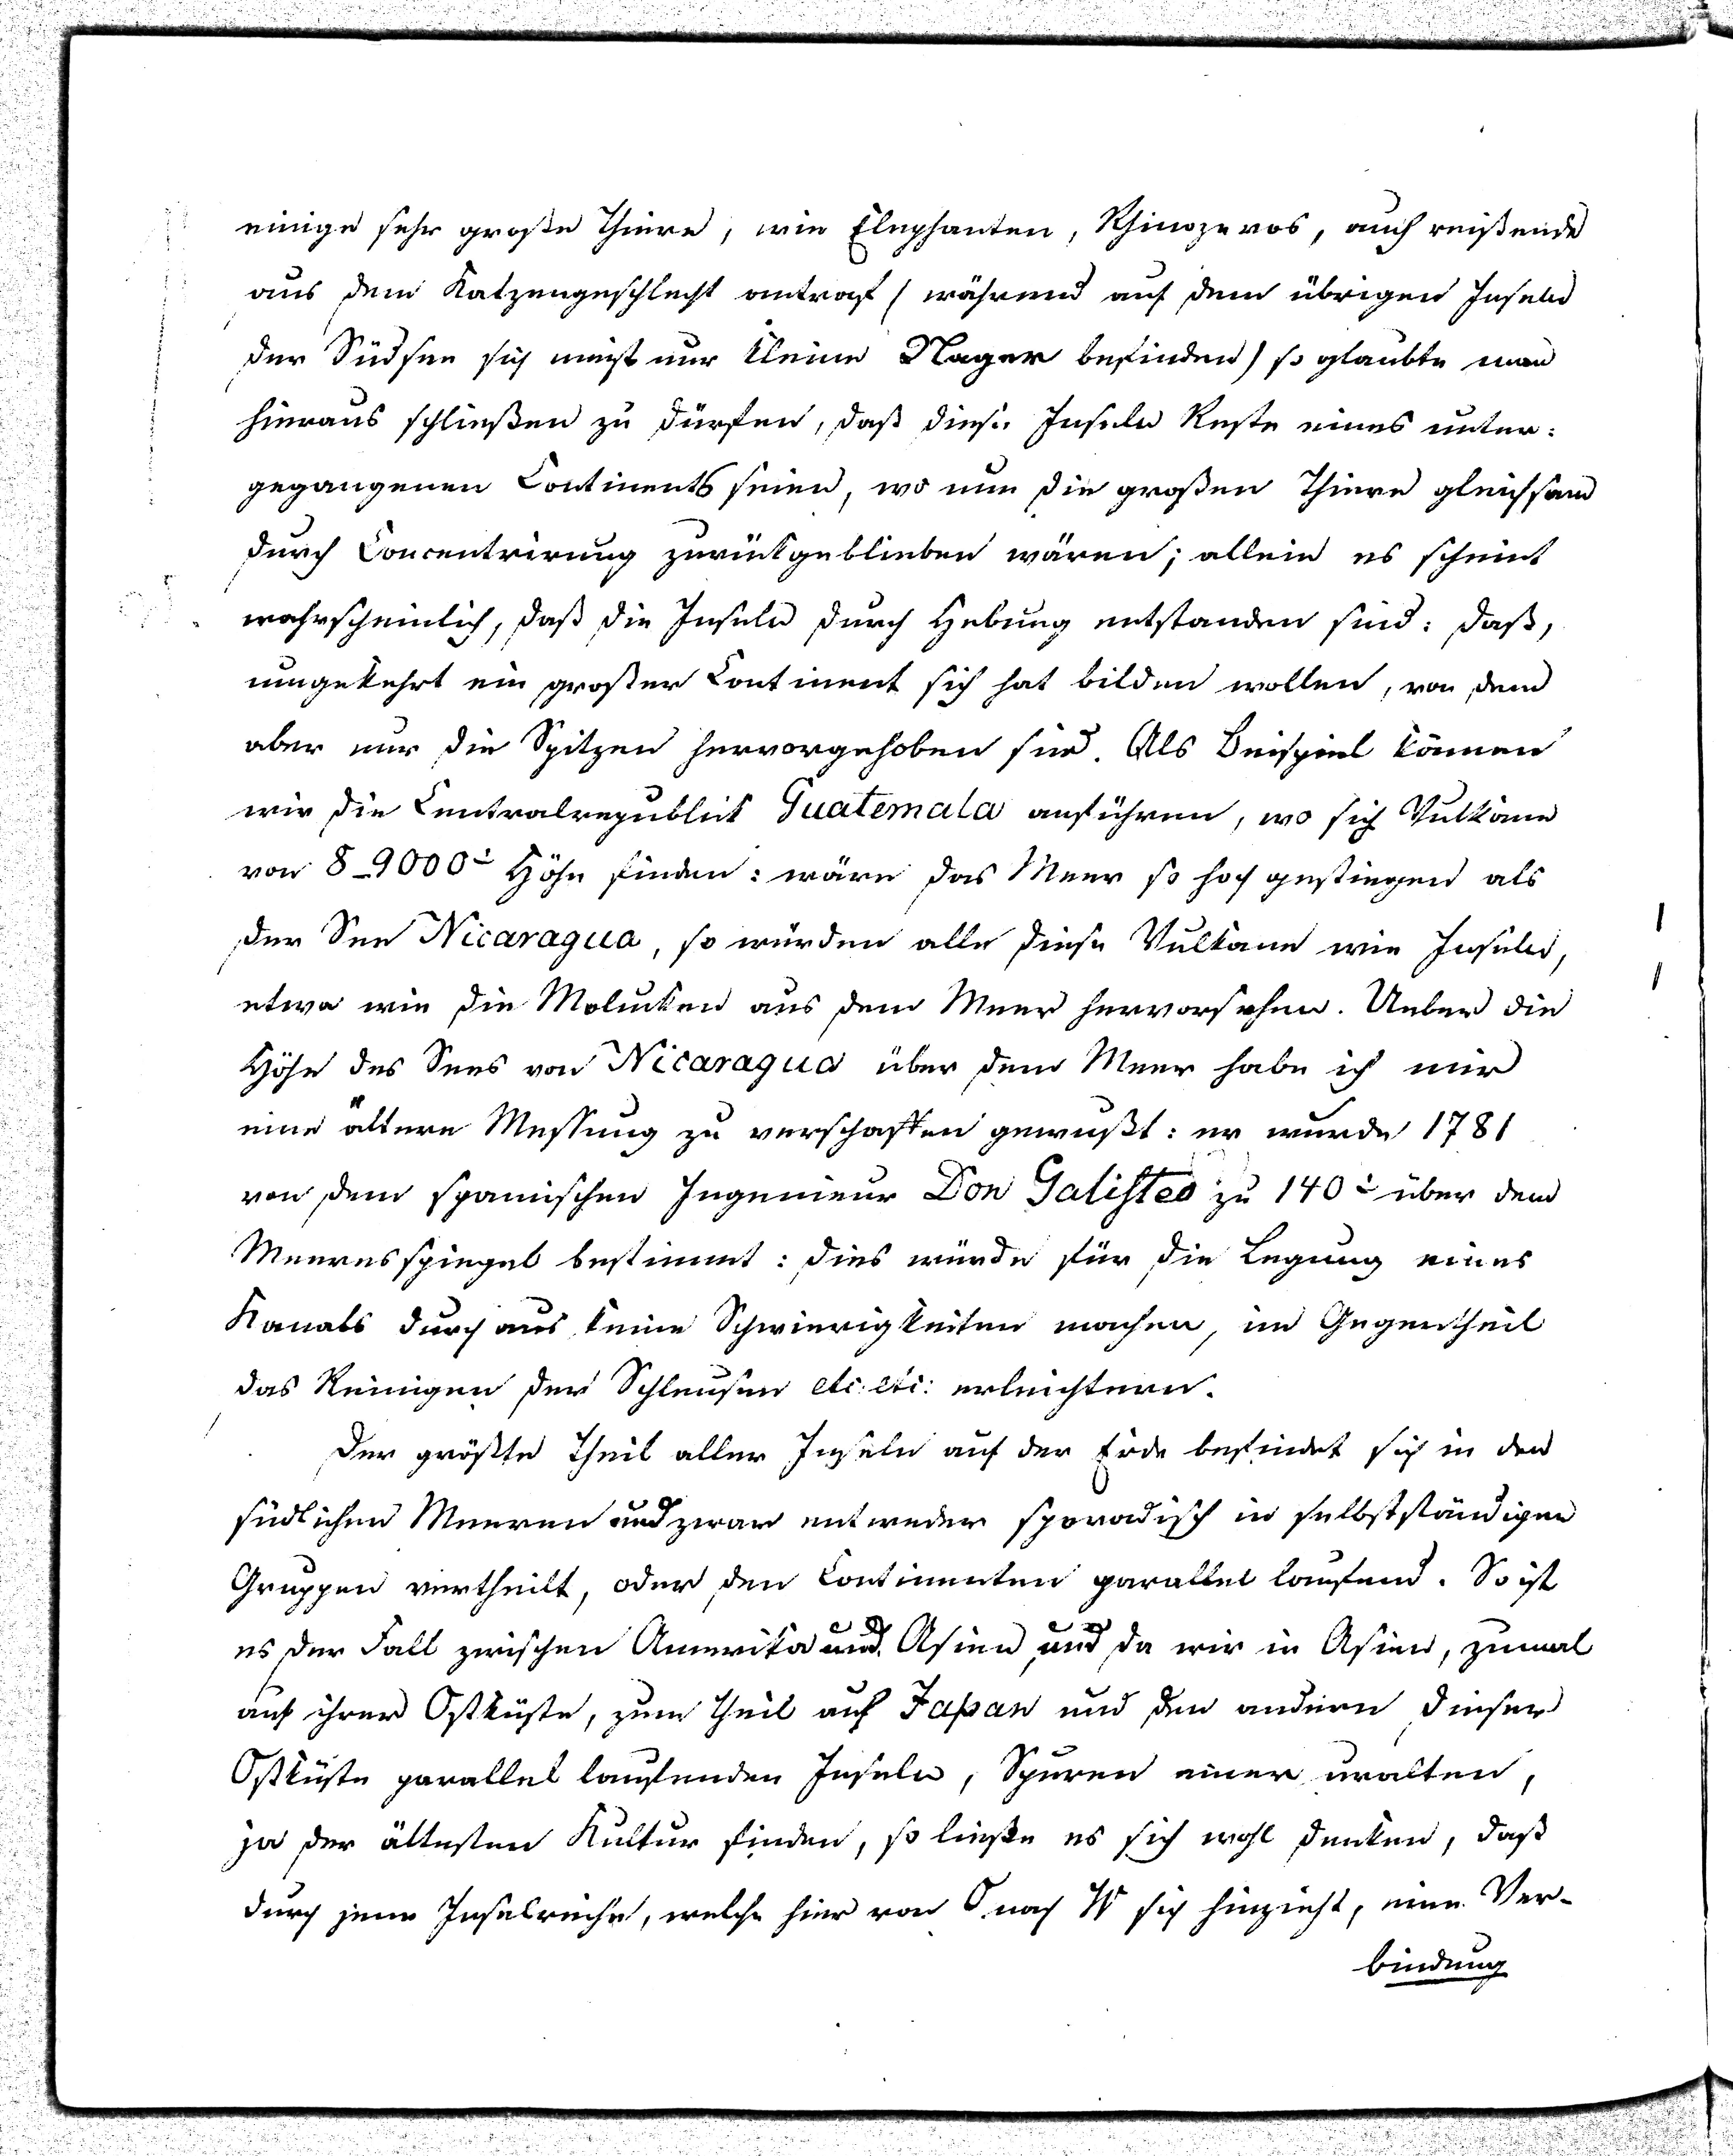 einige sehr große Thiere, wie Elephanten, Rhinozeros, auch reißende
aus dem Katzengeschlecht antraf (während auf dem übrigen Inseln
der Südsee sich meist nur kleine Nager befinden) so glaubte man
hieraus schließen zu dürfen, daß diese Inseln Reste eines unter:
gegangenen Continents seien, wo nun die großen Thiere gleichsam
durch Concentrirung zurückgeblieben wären; allein es scheint
wahrscheinlich, daß die Inseln durch Hebung entstanden sind: daß,
umgekehrt ein großer Continent sich hat bilden wollen, von dem
aber nur die Spitzen hervorgehoben sind. Als Beispiel können
wir die Centralrepublik Guatemala anführen, wo sich Vulkane
von 8_9000' Höhe finden: wäre das Meer so hoch gestiegen als
der See Nicaragua, so würden alle diese Vulkane wie Inseln,
etwa wie die Molucken aus dem Meer hervorsehen. Ueber die
Höhe des Sees von Nicaragua über dem Meer habe ich mir
eine ältere Messung zu verschaffen gewußt: er wurde 1781
von dem spanischen Ingenieur Don Galisteo zu 140' über dem
Meeresspiegel bestimmt: dies würde für die Legung eines
Kanals durchaus keine Schwierigkeiten machen, im Gegentheil
das Reinigen der Schleusen etc: etc: erleichtern.
Der größte Theil aller Inseln auf der Erde befindet sich in den
südlichen Meeren und zwar entweder sporadisch in selbstständigen
Gruppen vertheilt, oder den Continenten parallel laufend. So ist
es der Fall zwischen Amerika und Asien und da wir in Asien, zumal
auf ihrer Ostküste, zum Theil auf Japan und den andern dieser
Ostküste parallel laufenden Inseln, Spuren einer uralten,
ja der ältesten Kultur finden, so ließe es sich wohl denken, daß
durch jene Inselreihe, welche hier von O nach W sich hinzieht, eine Ver-
bindung